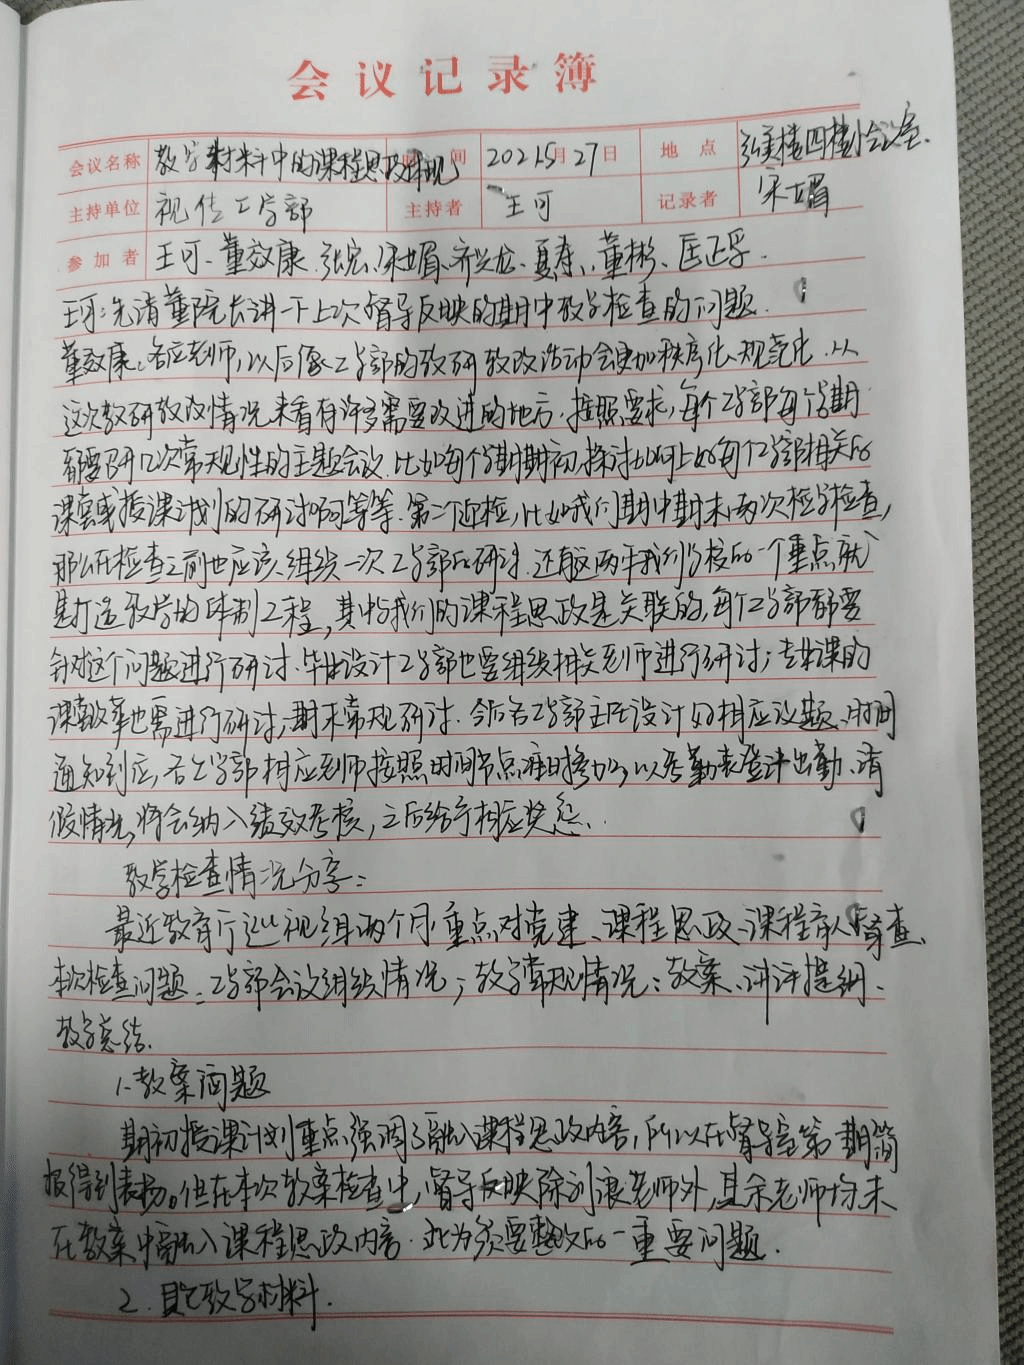 会议记录簿
会议名称 教学材料中的课程思政体现 时间 2021.5月27日 地点 弘美楼四楼小会议室.
主持单位 视传工学部 主持者 王可 记录者 宋眉
参加者 王可、董效康、张宏、宋眉、齐兴龙、夏寿、董彬、匡正孚.
王可:先请董院长讲一下上次督导反映的期中教学检查的问题.
董效康:各位老师,以后像工学部的教研教改活动会更加秩序化、规范化.从
这次教研教改情况来看有许多需要改进的地方.按照要求,每个工学部每个学期
都要开几次常规性的主题会议.比如每个学期期初探讨如何上好每个工学部相关的
课案或授课计划的研讨啊等等.第二个迎检,比如我们期中期末两次检学检查,
那么在检查之前也应该组织一次工学部的研讨.还有这两年我们学校的一个重点就
是打造教学的体制工程,其中与我们的课程思政是关联的,每个工学部都要
针对这个问题进行研讨.毕业设计工学部也要组织相关老师进行研讨;专业课的
课堂改革也需进行研讨;期末常规研讨.今后各工学部主任设计好相应议题、时间
通知到位,各工学部相应老师按照时间节点准时参加,以考勤表登记出勤、请
假情况,将会纳入绩效考核,之后给予相应奖惩.
教学检查情况分享:
最近教育厅巡视组两个月重点对党建、课程思政、课程育人督查.
本次检查问题:工学部会议组织情况;教学常规情况:教案、讲评提纲、
教学总结.
1.教案问题
期初授课计划重点强调了融入课程思政内容,所以在督导室第一期简
报得到表扬。但在本次教案检查中,督导反映除刘浪老师外,其余老师均未
在教案中融入课程思政内容.此为须要整改的一重要问题.
2.其它教学材料.